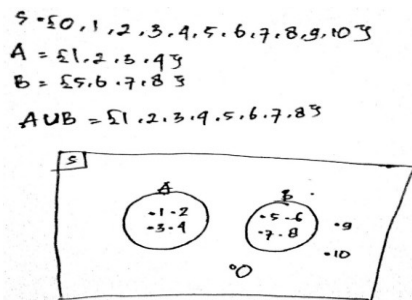 S = {0, 1, 2, 3, 4, 5, 6, 7, 8, 9, 10}
A = {1, 2, 3, 4}
B = {5, 6, 7, 8}
A∪B = {1, 2, 3, 4, 5, 6, 7, 8}
S
A B
·1 ·2 ·5 ·6
·3 ·4 ·7 ·8 ·9
·10
°0